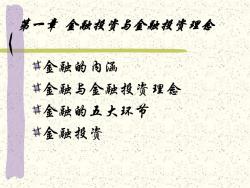 第一章 金融投资与金融投资理念
金融的内涵
金融与金融投资理念
金融的五大环节
金融投资